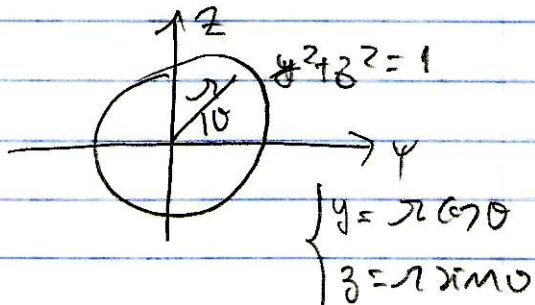 Z
y²+z²=1
r
θ
y
{ y = r cos θ
z = r sin θ